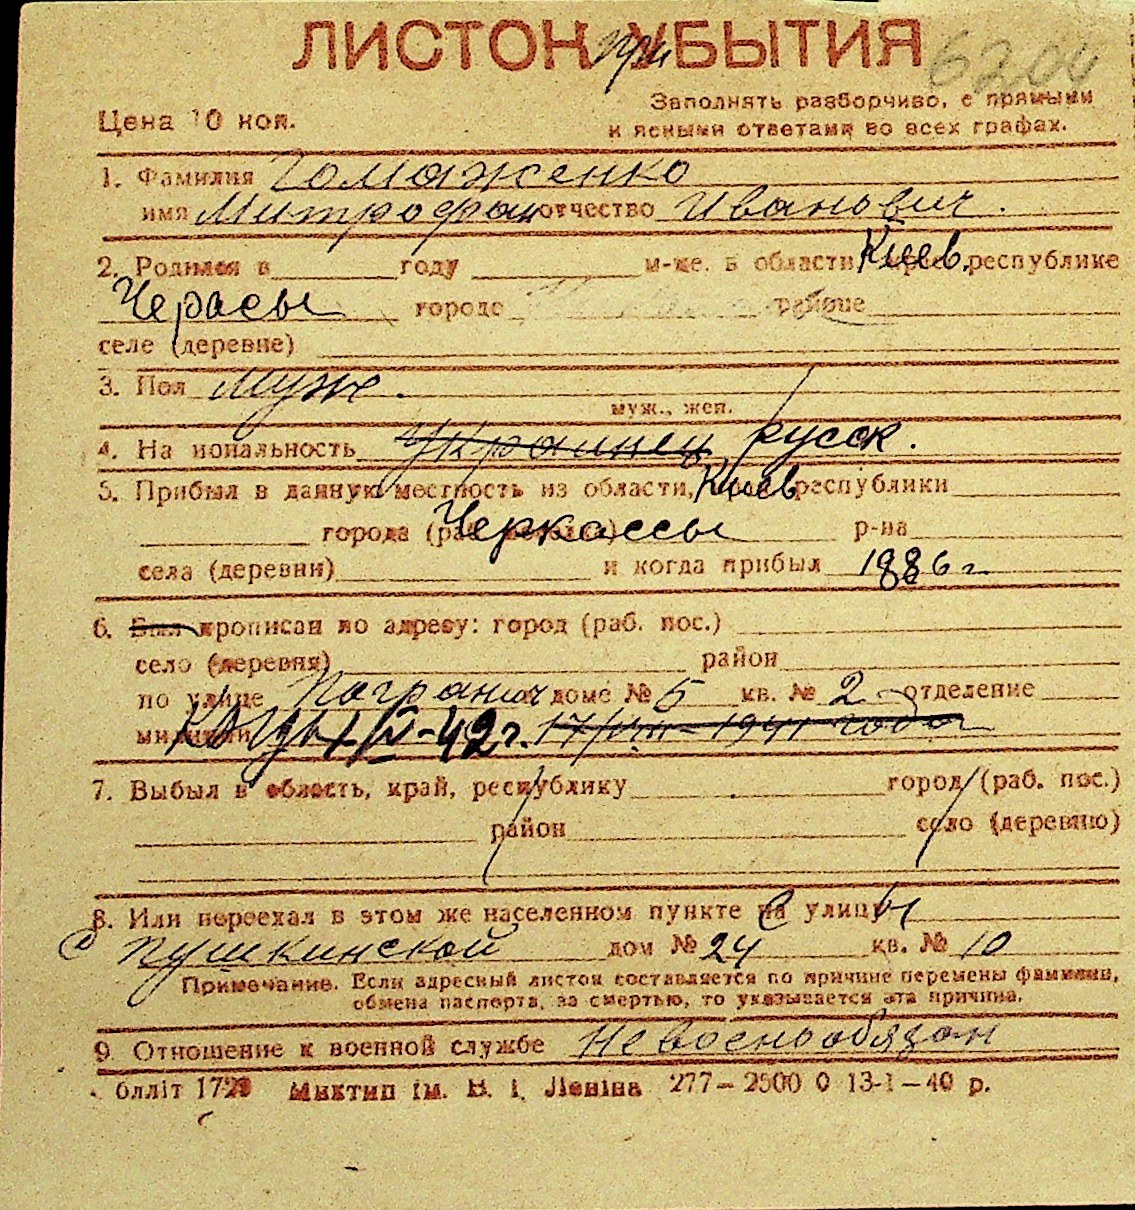 ЛИСТОК при УБЫТИЯ
Цена 10 коп.
Заполнять разборчиво, с прямыми
и ясными ответами во всех графах.
1. Фамилия Гомаженко
имя Митрофан отчество Иванович.
2. Родился в году м-це. в области Киев, республике
Черасы городе районе
селе (деревне)
3. Пол Муж.
муж., жен.
4. На иональность Украинец русск.
5. Прибыл в данную местность из области, Киев республики
города Черкассы р-на
села (деревни) и когда прибыл 1886 г
6. Был прописан по адресу: город (раб. пос.)
село (деревня) район
по улице Погранич доме № 5 кв. № 2 отделение
милиции IV-42 г. 17/VIII-1941 года
7. Выбыл в область, край, республику город (раб. пос.)
район село (деревню)
8. Или переехал в этом же населенном пункте с улицы
с Пушкинской дом № 24 кв. № 10
Примечание. Если адресный листок составляется по причине перемены фамилии,
обмена паспорта, за смертью, то указывается эта причина.
9. Отношение к военной службе Невоенообязан
блліт 1720 Миктип ім. В. І. Леніна 277-2500 0 13-I-40 р.